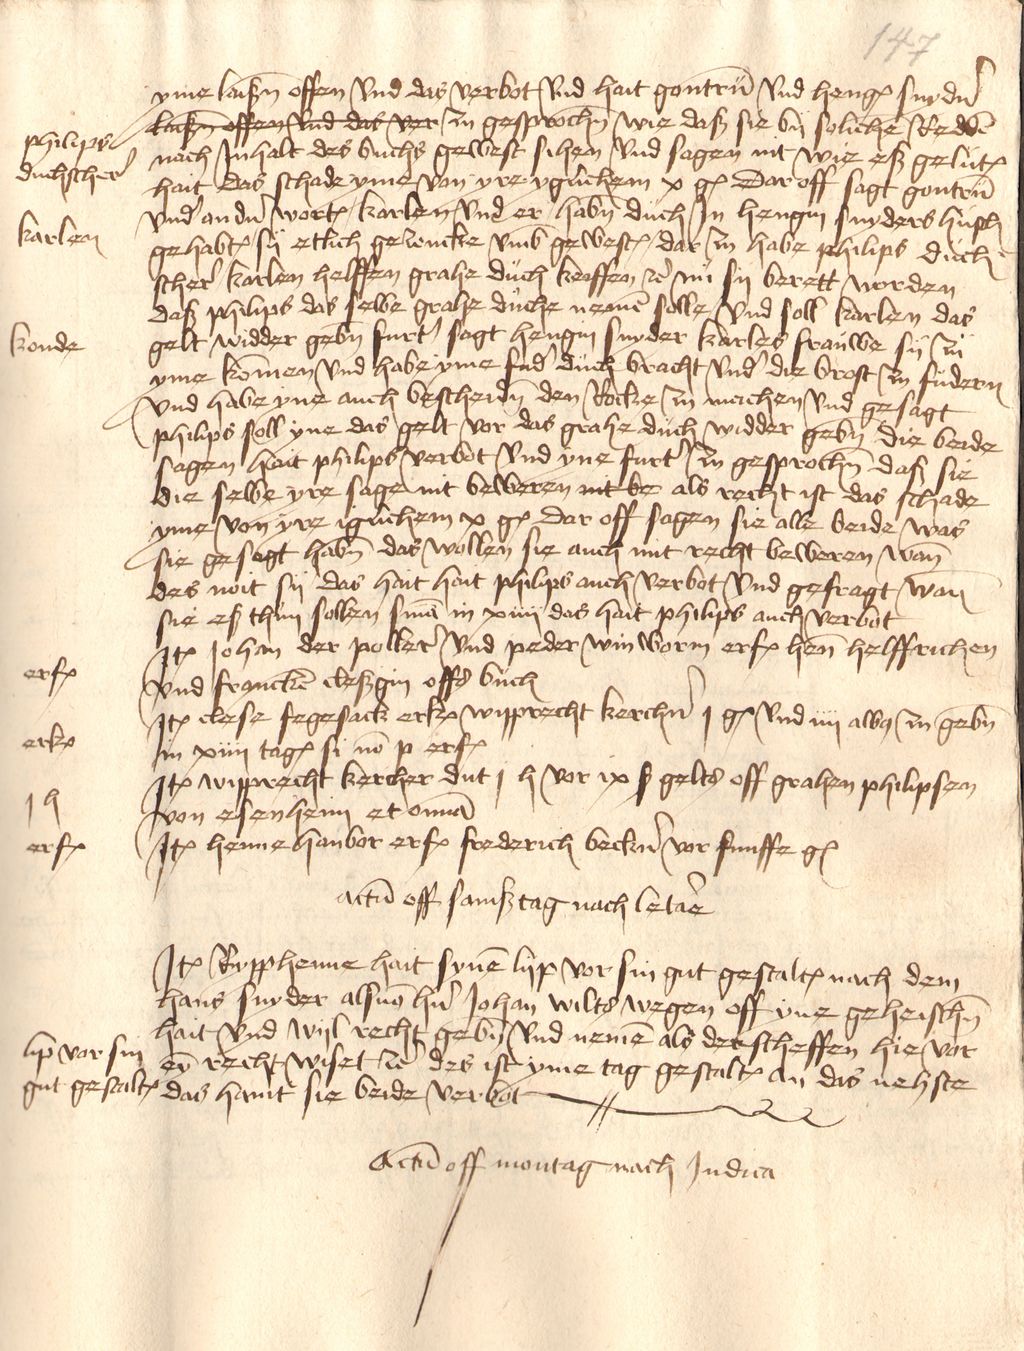 147
yme laißen offen und das verbot und hait gontrü und heng snyder
laißen offen und das ver zu gesprochen wie daß sie by soliche Redde
philips
nach Inhalt des buchs gewest sihen und sagen nit wie eß gelüt
duchscher
hait das schade yme von yre yglichem x g Dar off sagt gontrü
und an der wort karlen und er haben düch In hengin snyders huße
karlen
gehabt sy etlich gezencke umb gewest dar zu habe philips düch
scher karlen helffen grahe düch keuffen nu sy berett worden
daß philips das selbe grahe düche neme solle und soll karlen das
gelt widder geben furt sagt hengin snyder karles frauwe sy zu
konde
yme komen und habe yme düch bracht und die brost zu fudern
und habe yne auch bescheiden den Rocke zu machen und gesagt
philips soll yne das gelt vor das grahe düch widder geben die beide
sagen hait philips verbot und yne furt zu gesprochen daß sie
die selbe yre sage nit beweren nit be als recht ist das schade
yme von yre iglichem x g Dar off sagen sie alle beide was
sie gesagt haben das wollen sie auch mit recht beweren wan
des noit sy das hait hait philips auch verbot und gefragt wan
sie eß thun sollen in xiiii das hait philips auch verbot
It Johan der poller und peder winworm erf hen helffrichen
erf
und francke cleßgin offs buch
It clese fegesack erk wipprecht kercher j g und iiii albus zu geben
erk
in xiiii tag si no p erf
It wipprecht kercher dut j h vor ix ß gelts off grahen philipsen
j h
von esenheim et omnia
erf
It henne hanbor erf frederich becker vor funffe g
Actu off samßtag nach letare
It Rypphenne hait syne lip vor sin gut gestalt nach dem
hans snyder als von her Johan wilts wegen off yne geheischen
hait und wil recht geben und neme als der scheffen hie vor
lip vor sin
ein recht wiset des ist yme tag gestalt an das nehste
gut gestalt
das haint sie beide verbot
Actu off montag nach Judica